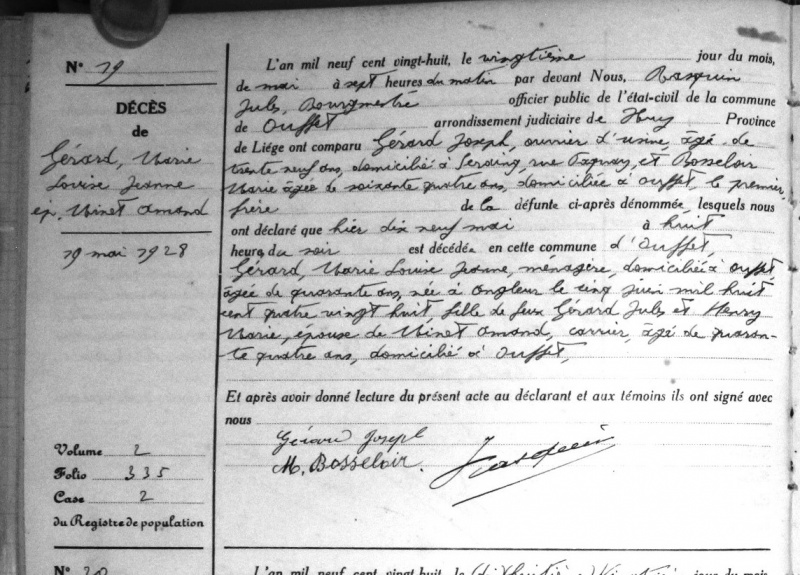 N° 19
DÉCÈS
de
Gérard, Marie
Louise Jeanne
ép. Minet Amand
19 mai 1928
Volume 2
Folio 335
Case 2
du Registre de population
L'an mil neuf cent vingt-huit, le vingtième jour du mois,
de mai à sept heures du matin par devant Nous, Rasquin
Jules, Bourgmestre officier public de l'état-civil de la commune
de Ouffet arrondissement judiciaire de Huy Province
de Liége ont comparu Gérard Joseph, ouvrier d'usine, âgé de
trente neuf ans, domicilié à Seraing, rue et Bosseloir
Marie âgée de soixante quatre ans, domiciliée à Ouffet, le premier,
frère de la défunte ci-après dénommée lesquels nous
ont déclaré que hier dix neuf mai à huit
heures du soir est décédée en cette commune d'Ouffet,
Gérard, Marie Louise Jeanne, ménagère, domiciliée à Ouffet
âgée de quarante ans, née à Angleur le cinq juin mil huit
cent quatre vingt huit, fille de feux Gérard Jules et Henry
Marie, épouse de Minet Amand, carrier, âgé de quaran-
te quatre ans, domicilié à Ouffet,
Et après avoir donné lecture du présent acte au déclarant et aux témoins ils ont signé avec
nous
Gérard Joseph
M. Bosseloir.
J Rasquin
N° 20
L'an mil neuf cent vingt-huit, le jour du mois,